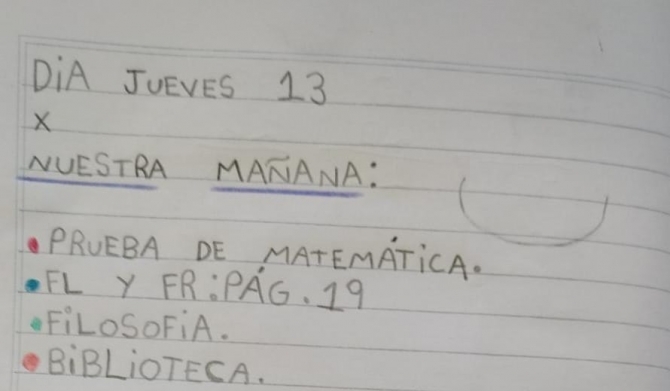 DiA JUEVES 13
X
NUESTRA MAÑANA:
• PRUEBA DE MATEMÁTiCA.
• FL Y FR: PÁG. 19
• FiLOSOFiA.
• BiBLiOTECA.